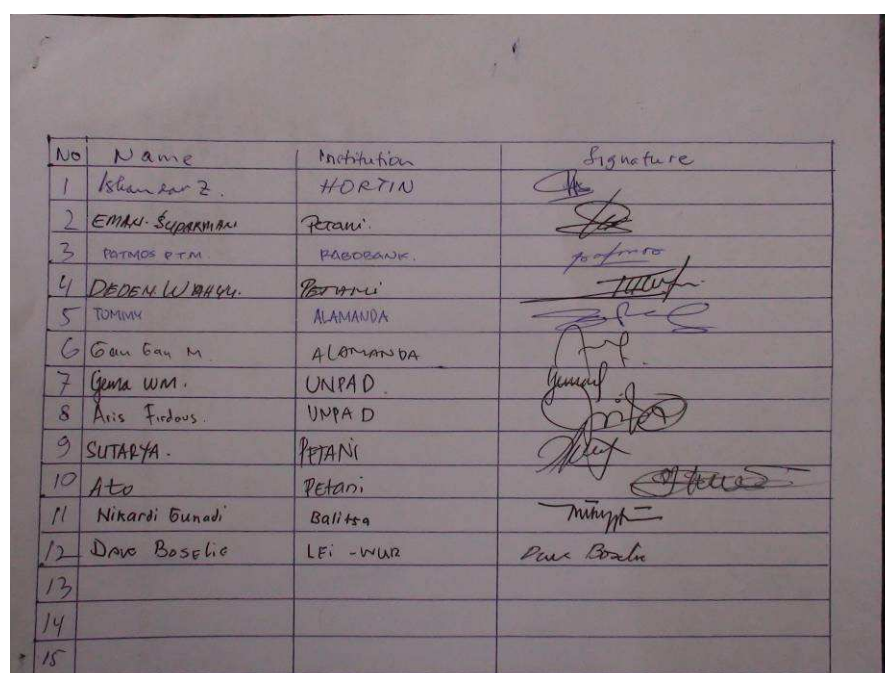 No Name Institution Signature
1 Iskandar Z. HORTIN
2 EMAN. SUPARMAN Petani.
3 PATMOS PTM. RABOBANK.
4 DEDEN WAHYU. PETANI
5 TOMMY ALAMANDA
6 Gan Gan M ALAMANDA
7 Gema WM. UNPAD
8 Aris Firdaus. UNPAD
9 SUTARYA. PETANI
10 Ato Petani
11 Nikardi Gunadi Balitsa
12 DAVE BOSELIE LEI - WUR Dave Boselie
13
14
15